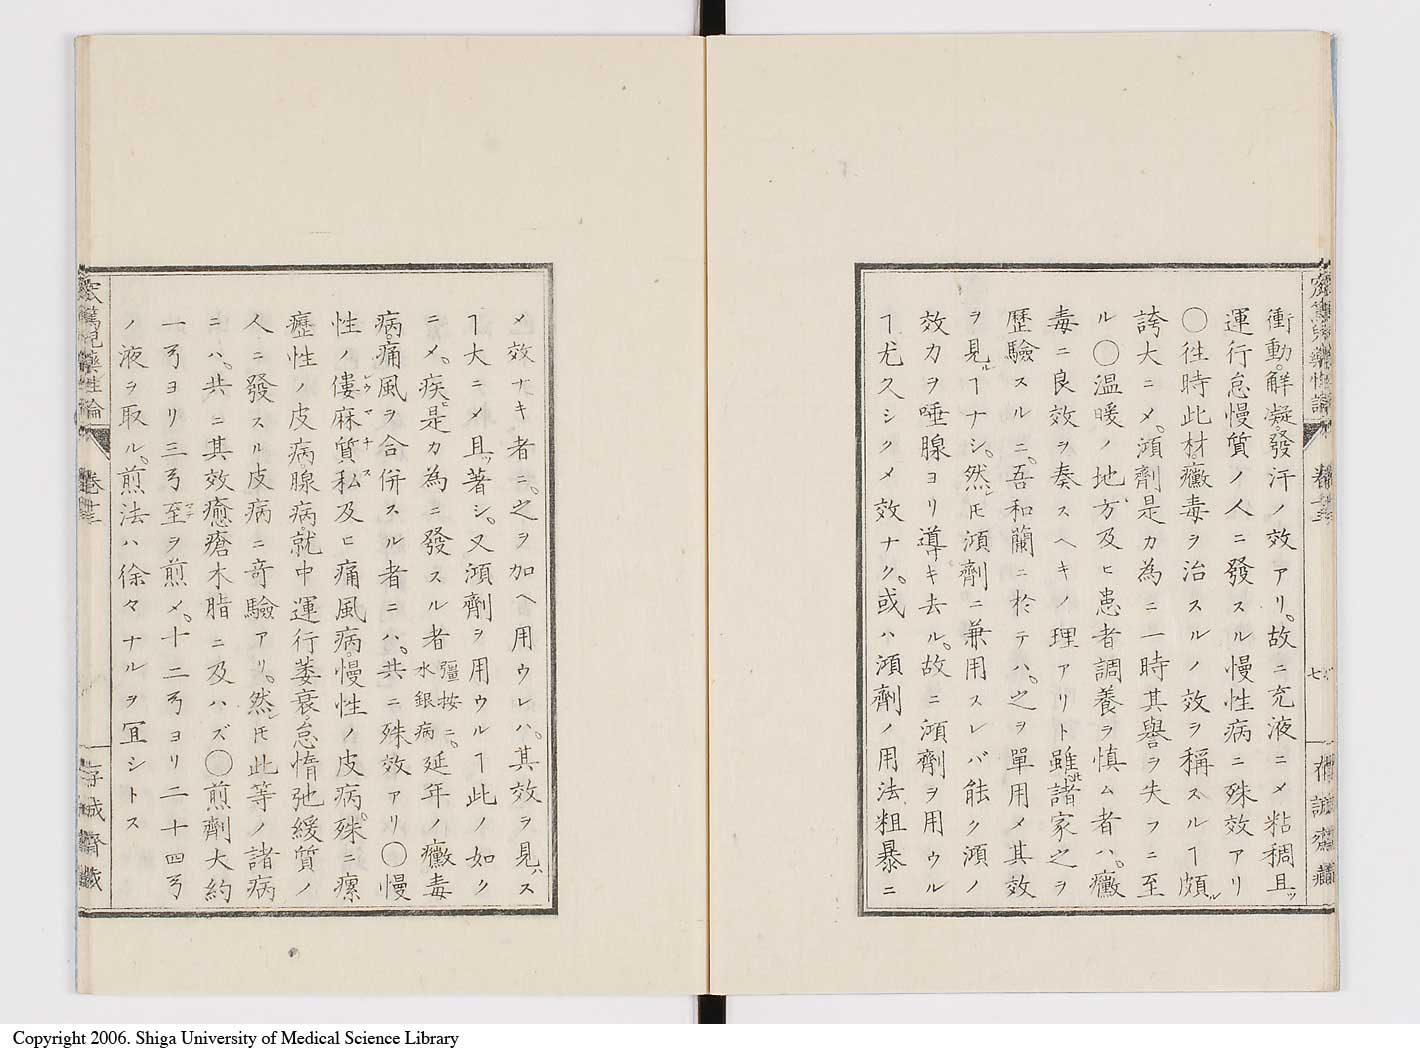 衝動。解凝。發汗ノ效アリ。故ニ充液ニメ粘稠且ッ
運行怠慢質ノ人ニ發スル慢性病ニ殊效アリ
〇徃時此材。黴毒ヲ治スルノ效ヲ稱スルヿ頗ル
誇大ニメ。澒劑是カ為ニ一時其譽ヲ失フニ至
ル〇温暖ノ地方及ヒ患者調養ヲ慎ム者ハ。黴
毒ニ良效ヲ奏スヘキノ理アリト雖𪜈諸家之ヲ
歴驗スルニ。吾和蘭ニ於テハ。之ヲ單用メ其效
ヲ見ルヿナシ。然レ𪜈澒劑ニ兼用スレバ能ク澒ノ
效力ヲ唾腺ヨリ導キ去ル。故ニ澒劑ヲ用ウル
ヿ尤久シクメ效ナク。或ハ澒劑ノ用法粗暴ニ
宏篤兒藥性論
卷十三
七
存誠齋藏
メ效ナキ者ニ。之ヲ加ヘ用ウレハ。其效ヲ見ハス
ヿ大ニメ且ッ著シ。又澒劑ヲ用ウルヿ此ノ如ク
ニメ。疾是カ為ニ發スル者彊按ニ。水銀病延年ノ黴毒
病。痛風ヲ合併スル者ニハ。共ニ殊效アリ〇慢
性ノ僂麻質私及ヒ痛風病。慢性ノ皮病。殊ニ瘰
癧性ノ皮病。腺病。就中運行萎衰。怠惰弛緩質ノ
人ニ發スル皮病ニ竒驗アリ。然レ𪜈此等ノ諸病
ニハ。共ニ其效癒瘡木脂ニ及ハズ〇煎劑大約
一弓ヨリ三弓至ヲ煎メ。十二弓ヨリ二十四弓
ノ液ヲ取ル。煎法ハ徐々ナルヲ冝シトス
宏篤兒藥性論
卷十三
存誠齋藏
Copyright 2006. Shiga University of Medical Science Library